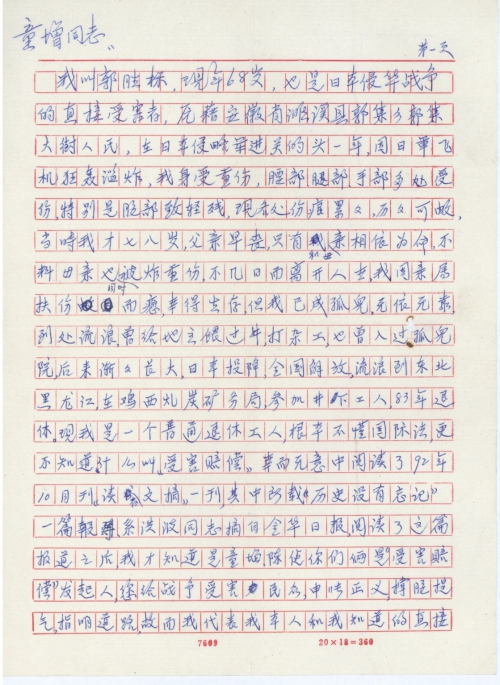 童增同志:
第一页
我叫郭胜标,现年68岁,也是日本侵华战争
的直接受害者,原籍安徽省濉溪县郭集乡郭集
大树人民,在日本侵略军进关的头一年,因日军飞
机狂轰滥炸,我身受重伤,脸部腿部手部多处受
伤,特别是脸部致轻残,现各处伤痕累々,历々可睹,
当時我才七八岁,父亲早丧,只有和母亲相依为命,不
料母亲也同时被炸重伤,不几日而离开人世,我因亲属
扶伤而愈,幸得生存,但我已成孤兒,无依无素,
到处流浪曾给地主餵过牛打杂工,也曾入过孤兒
院后来渐々长大,日本投降,全国解放,流浪到东北
黑龙江,在鸡西矿炭矿务局,参加井下工人,83年退
休,现我是一个普通退休工人,根本不懂国际法,更
不知道,什么叫《受害赔偿》幸而无意中阅读了92年
10月刊《读者文摘》一刊,其中所载《历史没有忘记》
一篇報导,系洪波同志摘自金华日报,阅读了这篇
报道之后我才知道是童增,陈使你们俩是《受害赔
偿》发起人,给战争受害民众,申张正义,撑腰提
气,指明道路,故而我代表我本人和我知道的直接
7609
20×18=360